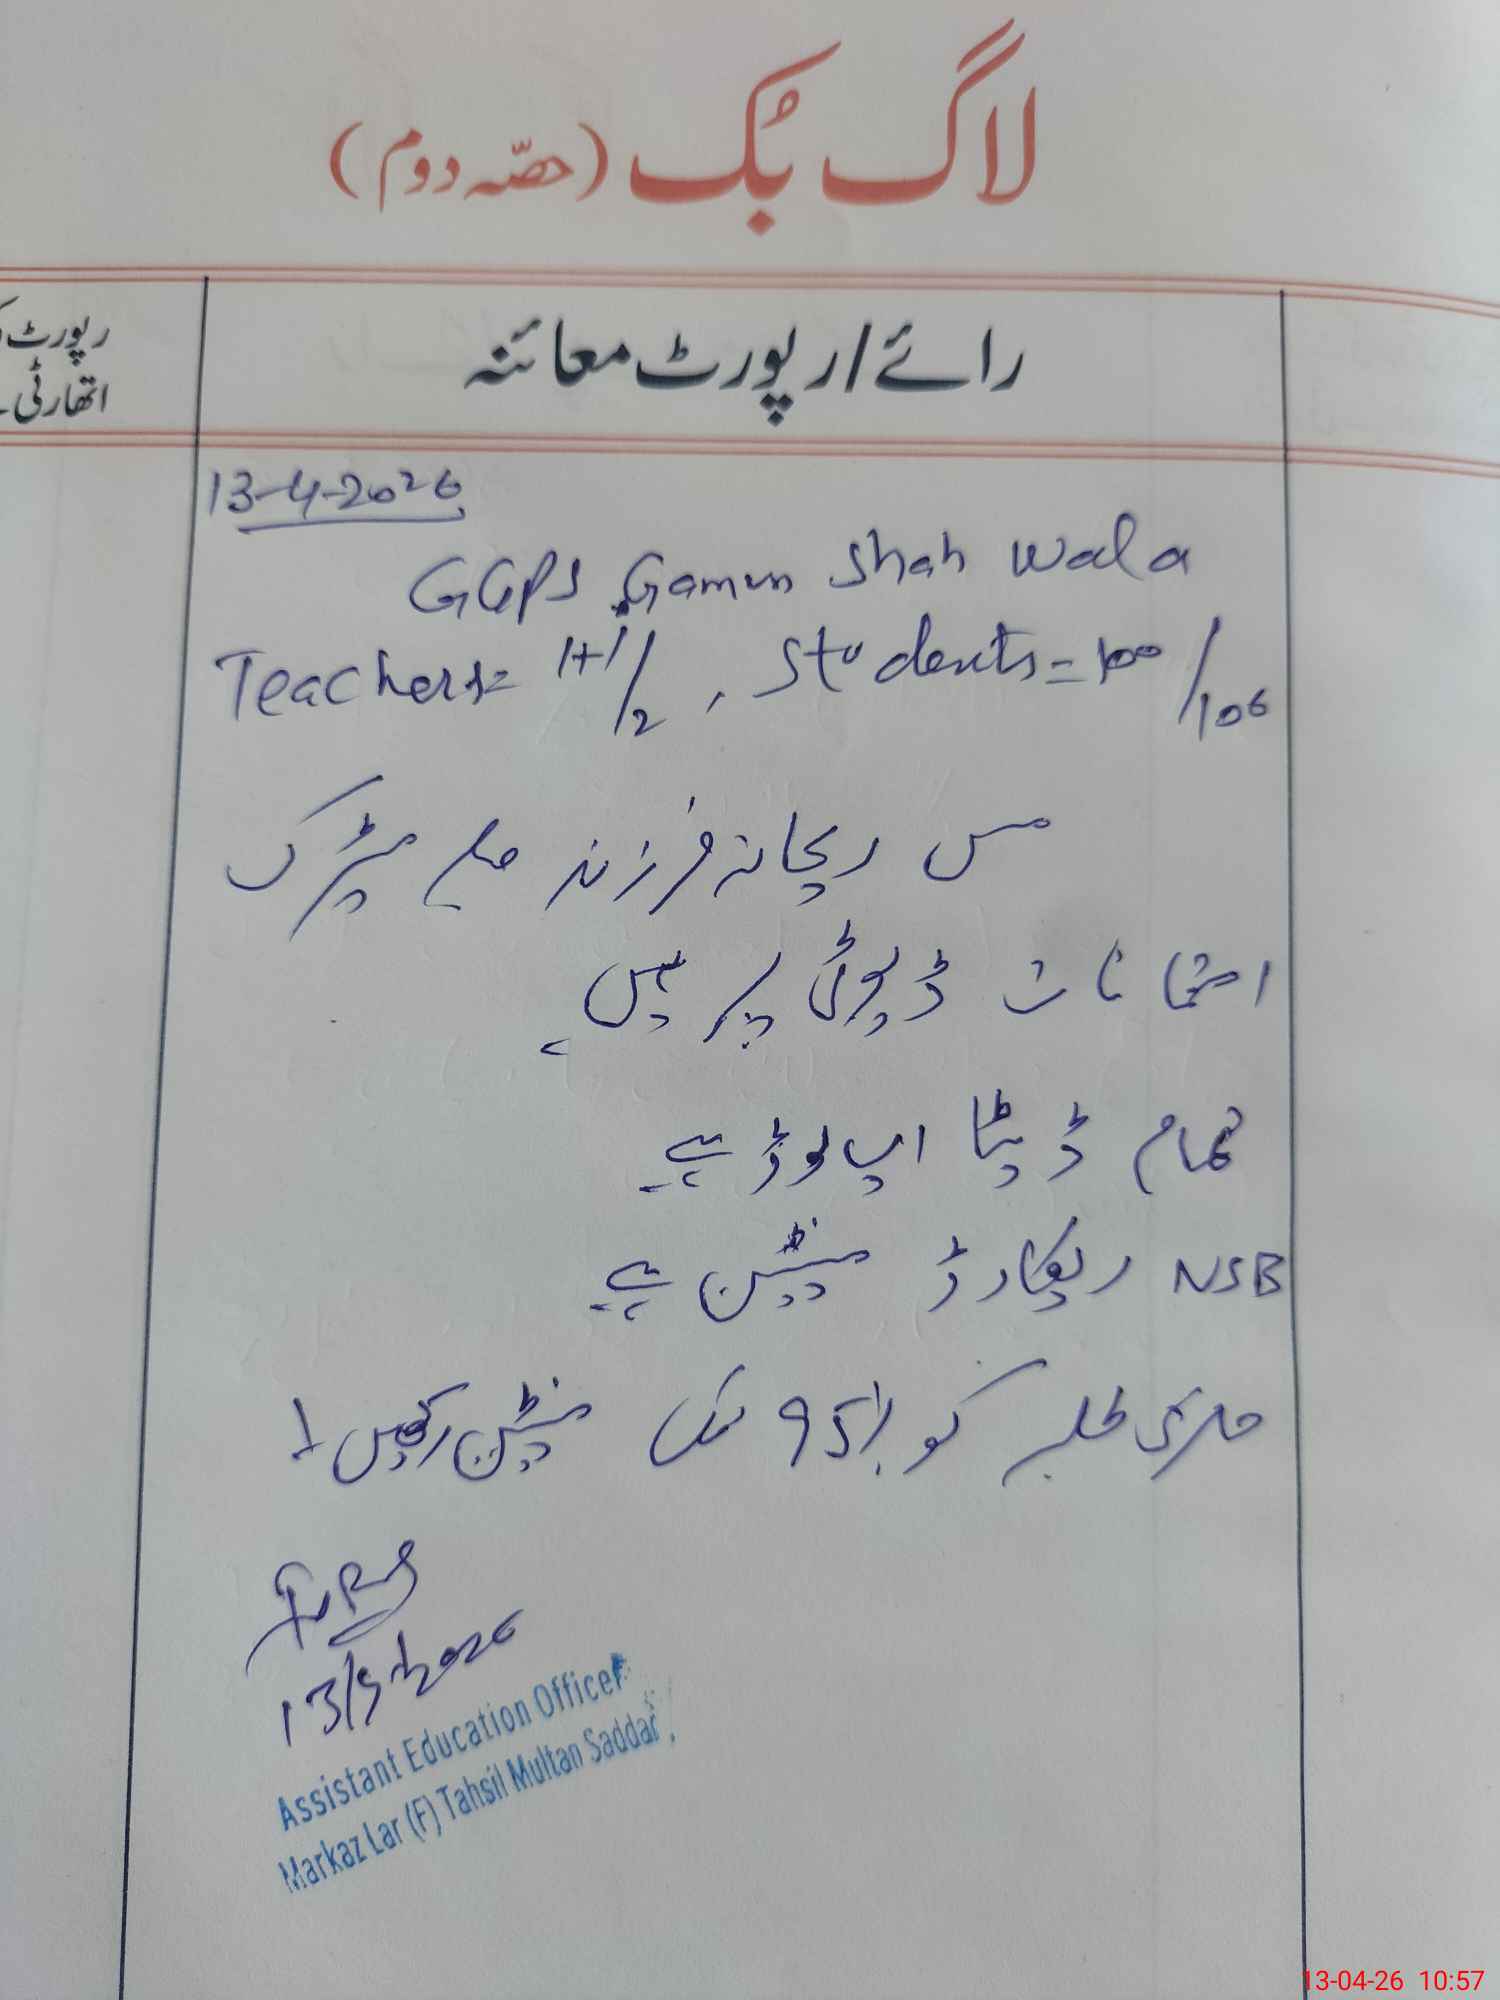 لاگ بُک (حصّہ دوم)
رائے/رپورٹ معائنہ
رپورٹ
اتھارٹی
13-4-2026
GGPS Gamun Shah Wala
Teachers= 1+1/2, Students=100/106
مس ریحانہ فرزند میٹرک
امتحانات ڈیوٹی پر ہیں
تمام ڈیٹا اپ لوڈ ہے۔
NSB ریکارڈ مینٹین ہے۔
حاضری طلبہ کو 95% تک مینٹین رکھیں!
13/4/2026
Assistant Education Officer
Markaz Lar (F) Tahsil Multan Saddar
13-04-26 10:57